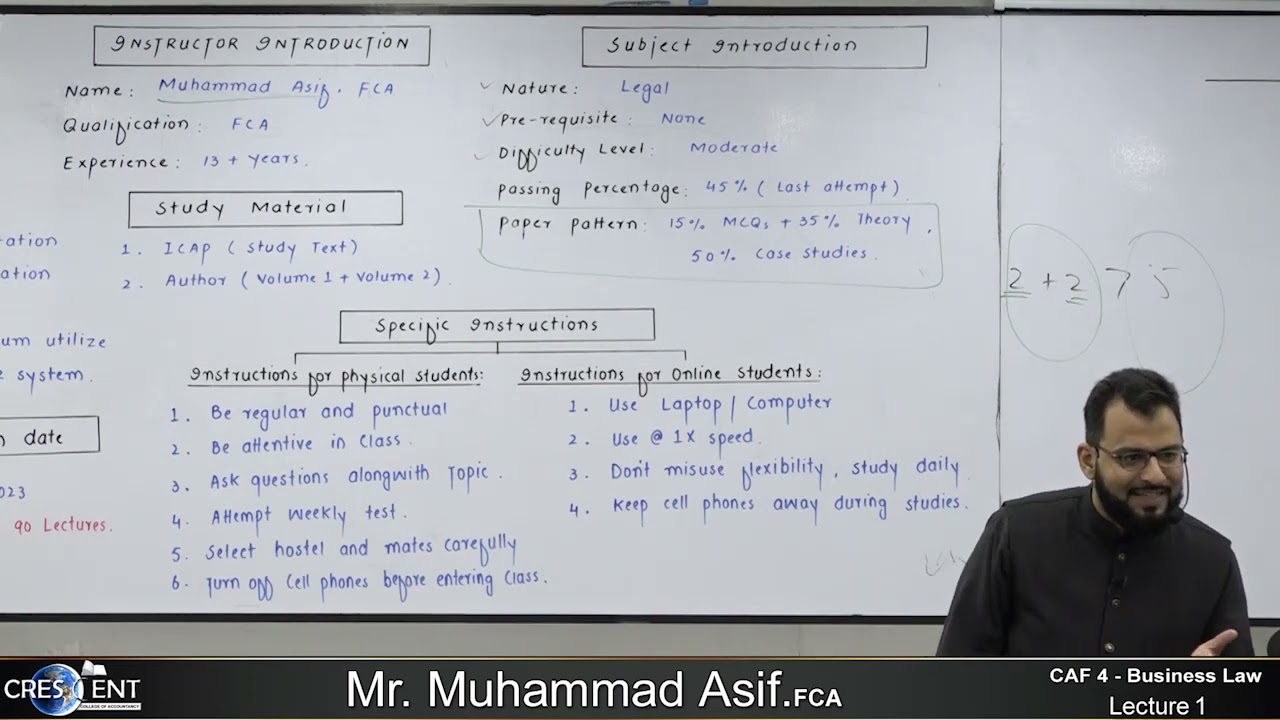 INSTRUCTOR INTRODUCTION
Name: Muhammad Asif. FCA
Qualification: FCA
Experience: 13 + years.
Study Material
1. ICAP ( Study Text)
2. Author ( Volume 1 + Volume 2).
Subject Introduction
Nature: Legal
Pre-requisite: None
Difficulty Level: Moderate
Passing Percentage: 45% ( Last attempt)
Paper Pattern: 15% MCQs + 35% Theory,
50% Case Studies.
2 + 2 > 5
um utilize
system.
date
2023
90 Lectures.
Specific Instructions
Instructions for physical students:
1. Be regular and punctual
2. Be attentive in Class.
3. Ask questions alongwith Topic.
4. Attempt weekly test.
5. Select hostel and mates carefully
6. Turn off Cell phones before entering Class.
Instructions for Online Students:
1. Use Laptop / Computer
2. Use @ 1x speed.
3. Don't misuse flexibility, study daily
4. Keep cell phones away during studies.
CRESCENT
COLLEGE OF ACCOUNTANCY
Mr. Muhammad Asif.FCA
CAF 4 - Business Law
Lecture 1